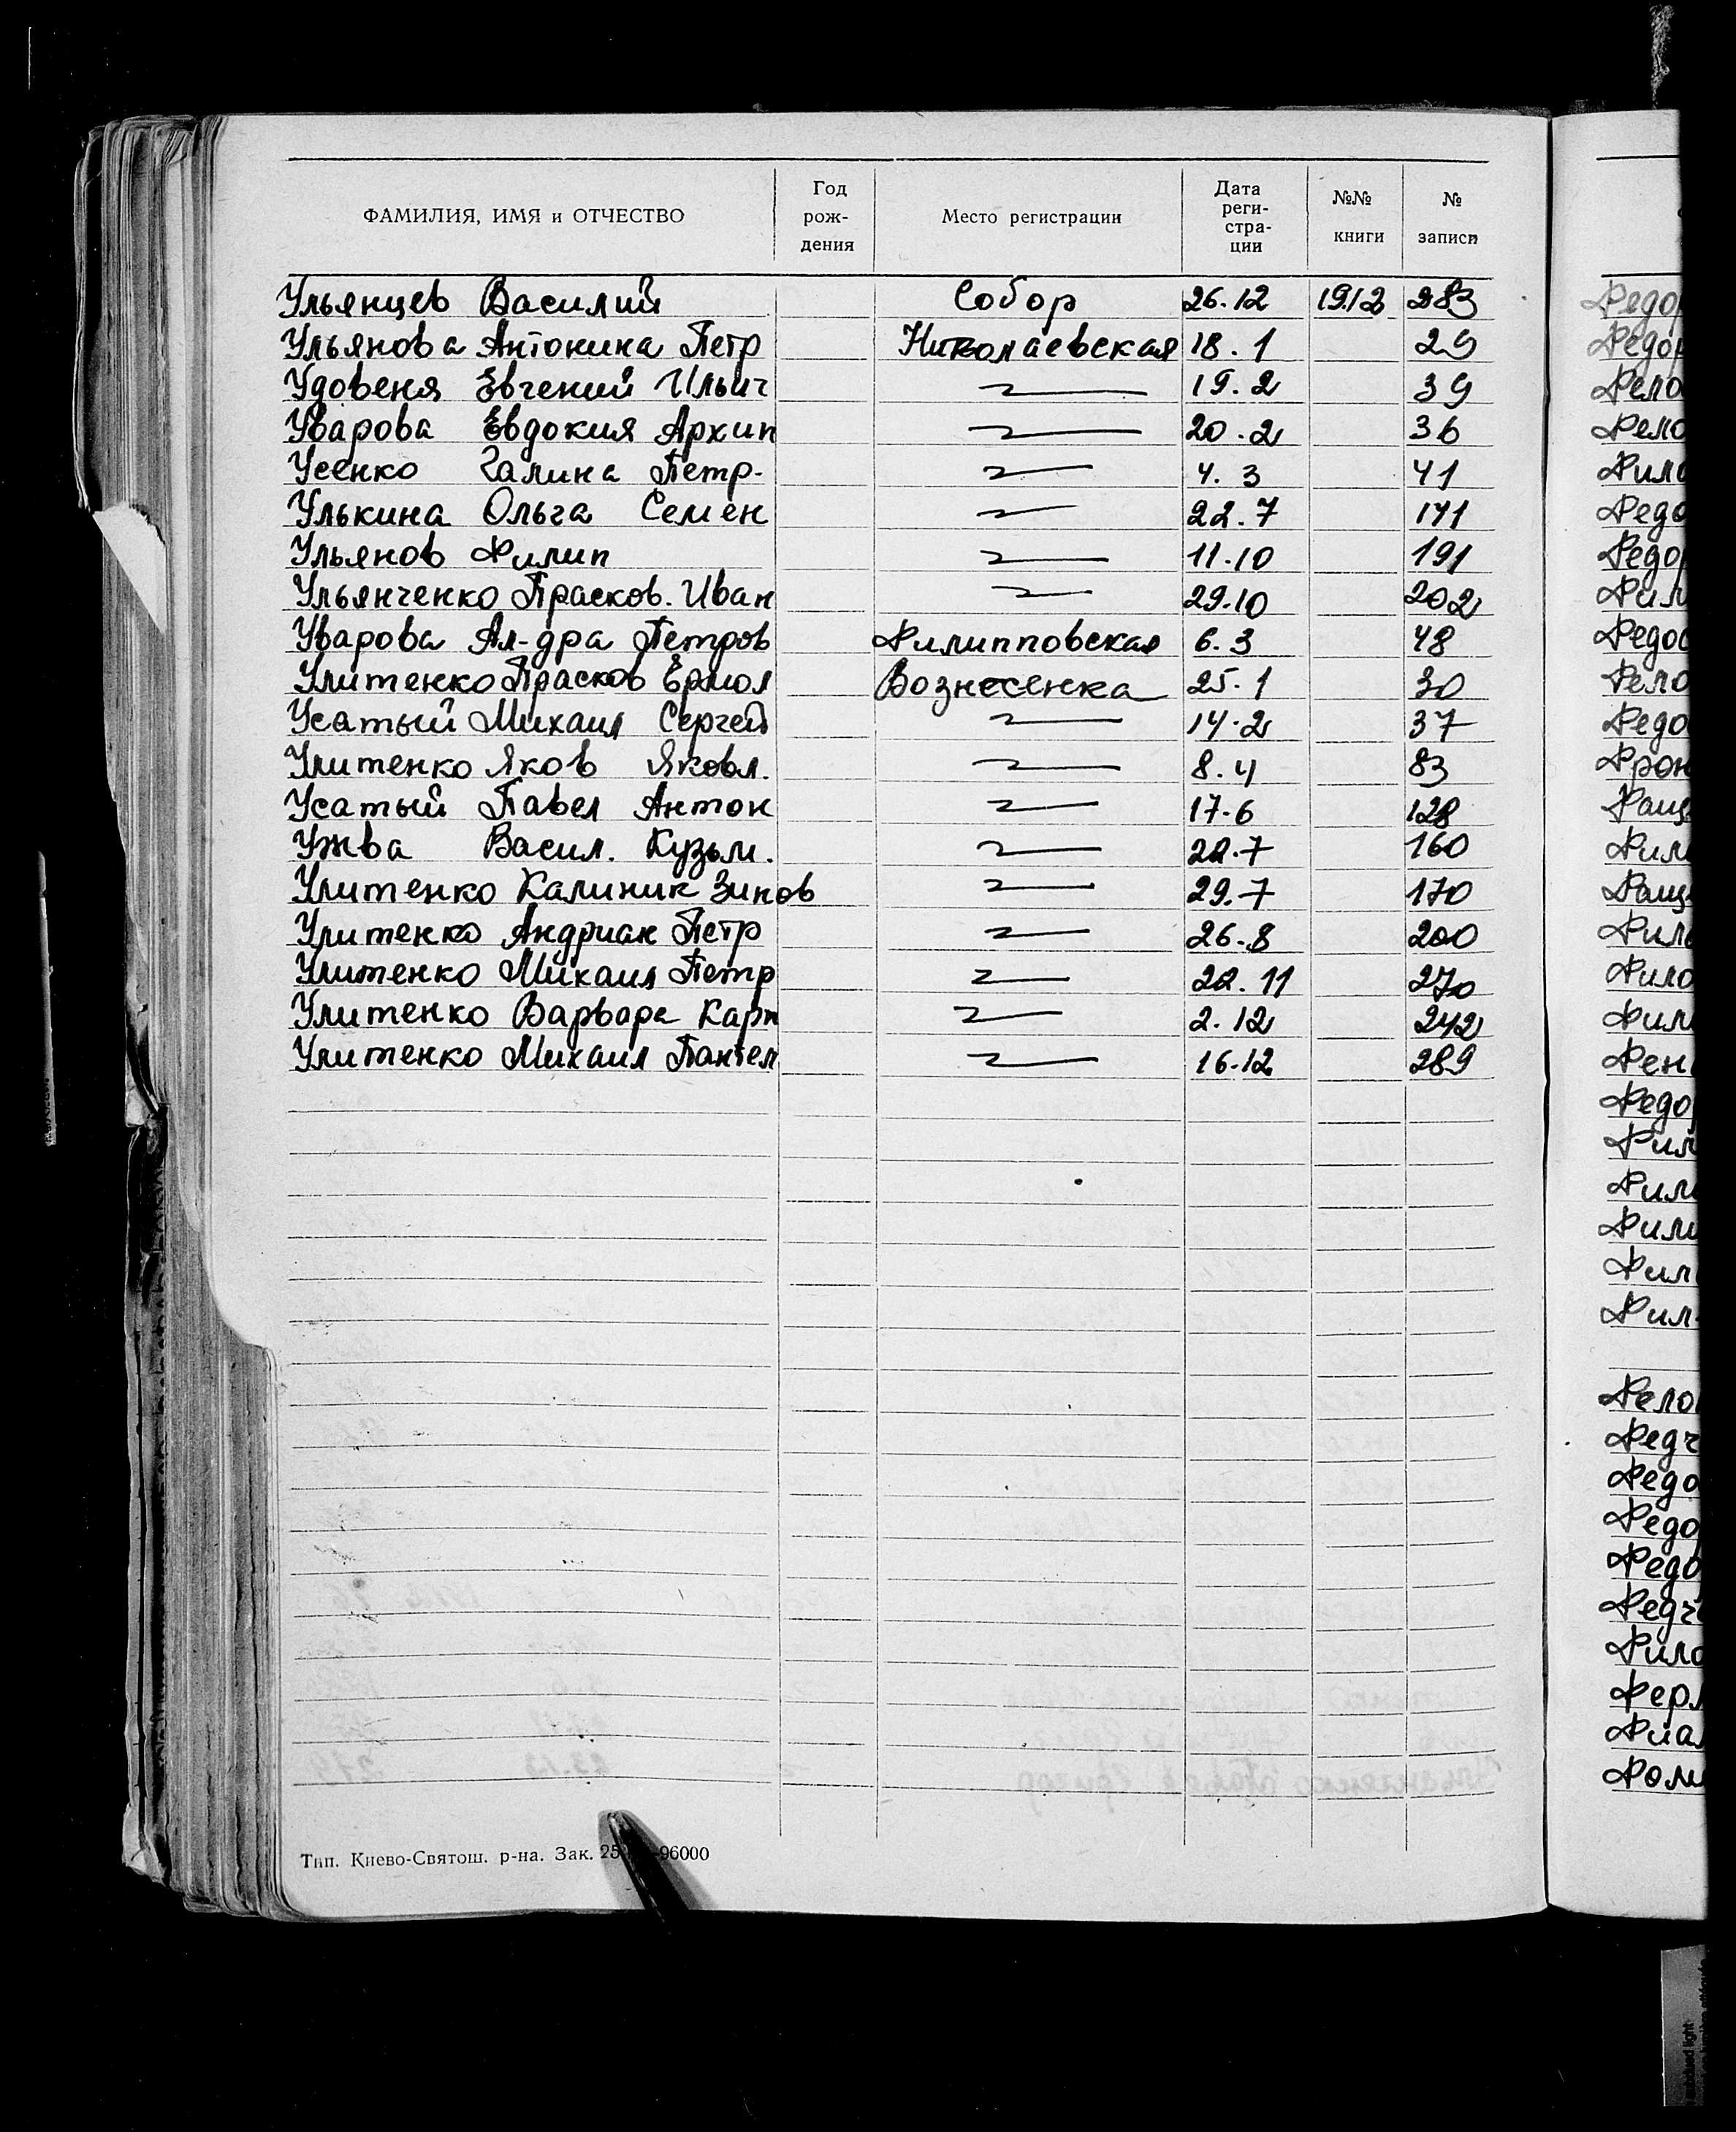 ФАМИЛИЯ, ИМЯ и ОТЧЕСТВО Год рож- дения Место регистрации Дата реги- стра- ции №№ книги № записи
Ульянцев Василий Собор 26.12 1912 283
Ульянова Антонина Петр Николаевская 18.1 29
Удовеня Евгений Ильич 19.2 39
Уварова Евдокия Архип 20.2 36
Усенко Галина Петр. 4.3 41
Улькина Ольга Семен 22.7 141
Ульянов Филип 11.10 191
Ульянченко Прасков. Иван 29.10 202
Уварова Ал-дра Петров Филипповская 6.3 48
Улитенко Прасков Ермол Вознесенка 25.1 30
Усатый Михаил Сергей 14.2 37
Улитенко Яков Яковл. 8.4 83
Усатый Павел Антон 17.6 128
Ужва Васил. Кузьм. 22.7 160
Улитенко Калиник Зинов 29.7 170
Улитенко Андриан Петр 26.8 200
Улитенко Михаил Петр 22.11 270
Улитенко Варвара Карп 2.12 242
Улитенко Михаил Пантел 16.12 289
Тип. Киево-Святош. р-на. Зак. 25 -96000
Федор
Федор
Фило
Федо
Федор
Фил
Федос
Федо
Фрон
Фащ
Фил
Фащ
Фило
Фил
Фен
Федор
Фил
Фил
Фили
Фил
Фил-
Федч
Федо
Федор
Федо
Федч
Фило